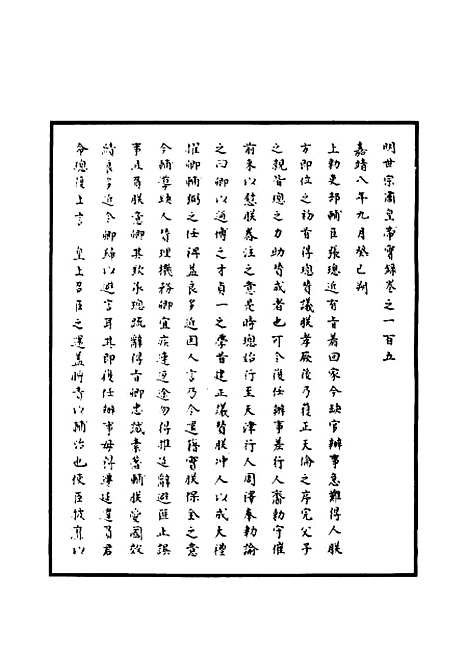 明世宗肅皇帝實錄卷之一百五
嘉靖八年九月癸巳朔
上勅吏部輔臣張璁近有旨着回家今缺官辦事急難得人朕
方即位之初首得璁贊議朕孝厥後乃獲正天倫之序完父子
之親皆璁之力助贊成者也可令復任辦事差行人齎勅守催
前來以慰朕眷注之意是時璁始行至天津行人周澤奉勅諭
之曰卿以通博之才貞一之學首建正議贊朕冲人以成大禮
擢卿輔弼之任裨益良多近因人言乃令還獲寔朕保全之意
今輔導缺人皆理機務卿宜疾速逕途勿得推延辭避匪止誤
事且辱朕意卿其欽承璁疏辭得旨卿忠誠素著輔朕愛國效
績良多近令卿歸以避言耳其即復任辦事毋得準延違司君
令璁復上言 皇上召臣之還蓋將責以輔治也使臣